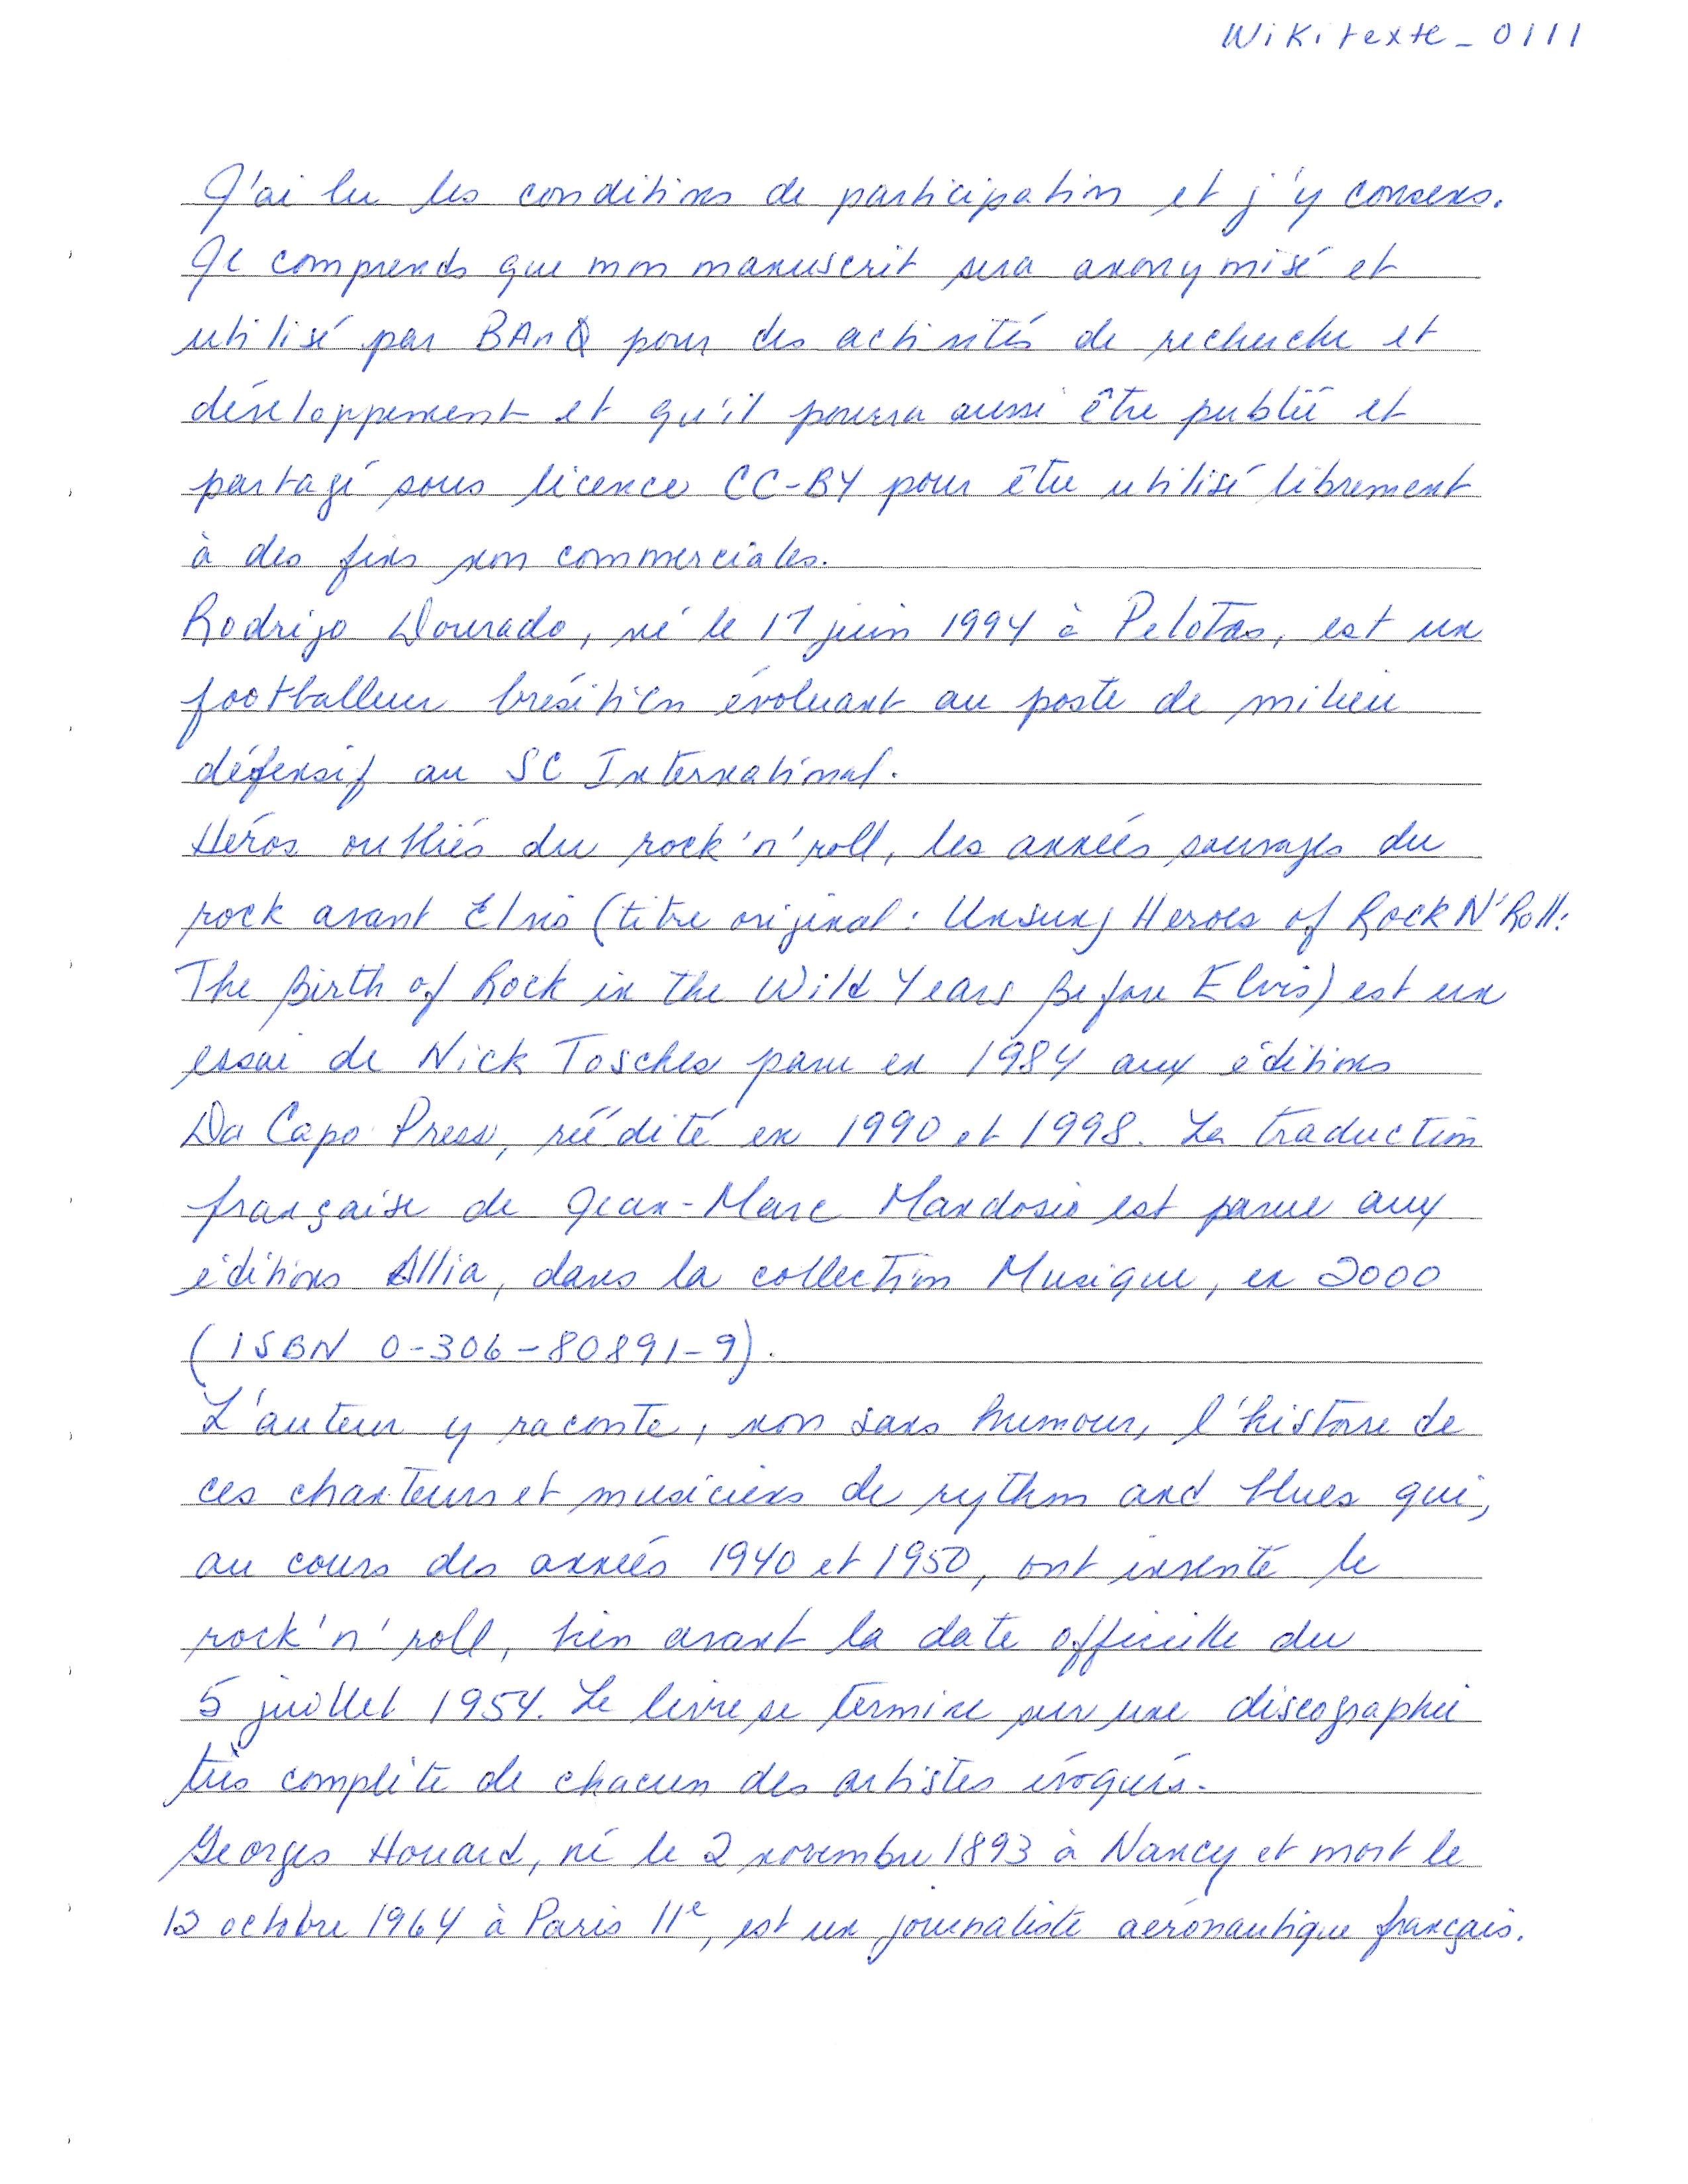 Wikitexte_0111
J'ai lu les conditions de participation et j'y consens.
Je comprends que mon manuscrit sera anonymisé et
utilisé par BAnQ pour des activités de recherche et
développement et qu'il pourra aussi être publié et
partagé sous licence CC-BY pour être utilisé librement
à des fins non commerciales.
Rodrigo Dourado, né le 17 juin 1994 à Pelotas, est un
footballeur brésilien évoluant au poste de milieu
défensif au SC International.
Héros oubliés du rock'n'roll, les années sauvages du
rock avant Elvis (titre original : Unsung Heroes of Rock N'Roll:
The Birth of Rock in the Wild Years Before Elvis) est un
essai de Nick Tosches paru en 1984 aux éditions
Da Capo Press, réédité en 1990 et 1998. La traduction
française de Jean-Marc Mandosio est parue aux
éditions Allia, dans la collection Musique, en 2000
(ISBN 0-306-80891-9).
L'auteur y raconte, non sans humour, l'histoire de
ces chanteurs et musiciens de rythm and blues qui,
au cours des années 1940 et 1950, ont inventé le
rock'n'roll, bien avant la date officielle du
5 juillet 1954. Le livre se termine sur une discographie
très complète de chacun des artistes évoqués.
Georges Houard, né le 2 novembre 1893 à Nancy et mort le
12 octobre 1964 à Paris 11e, est un journaliste aéronautique français.